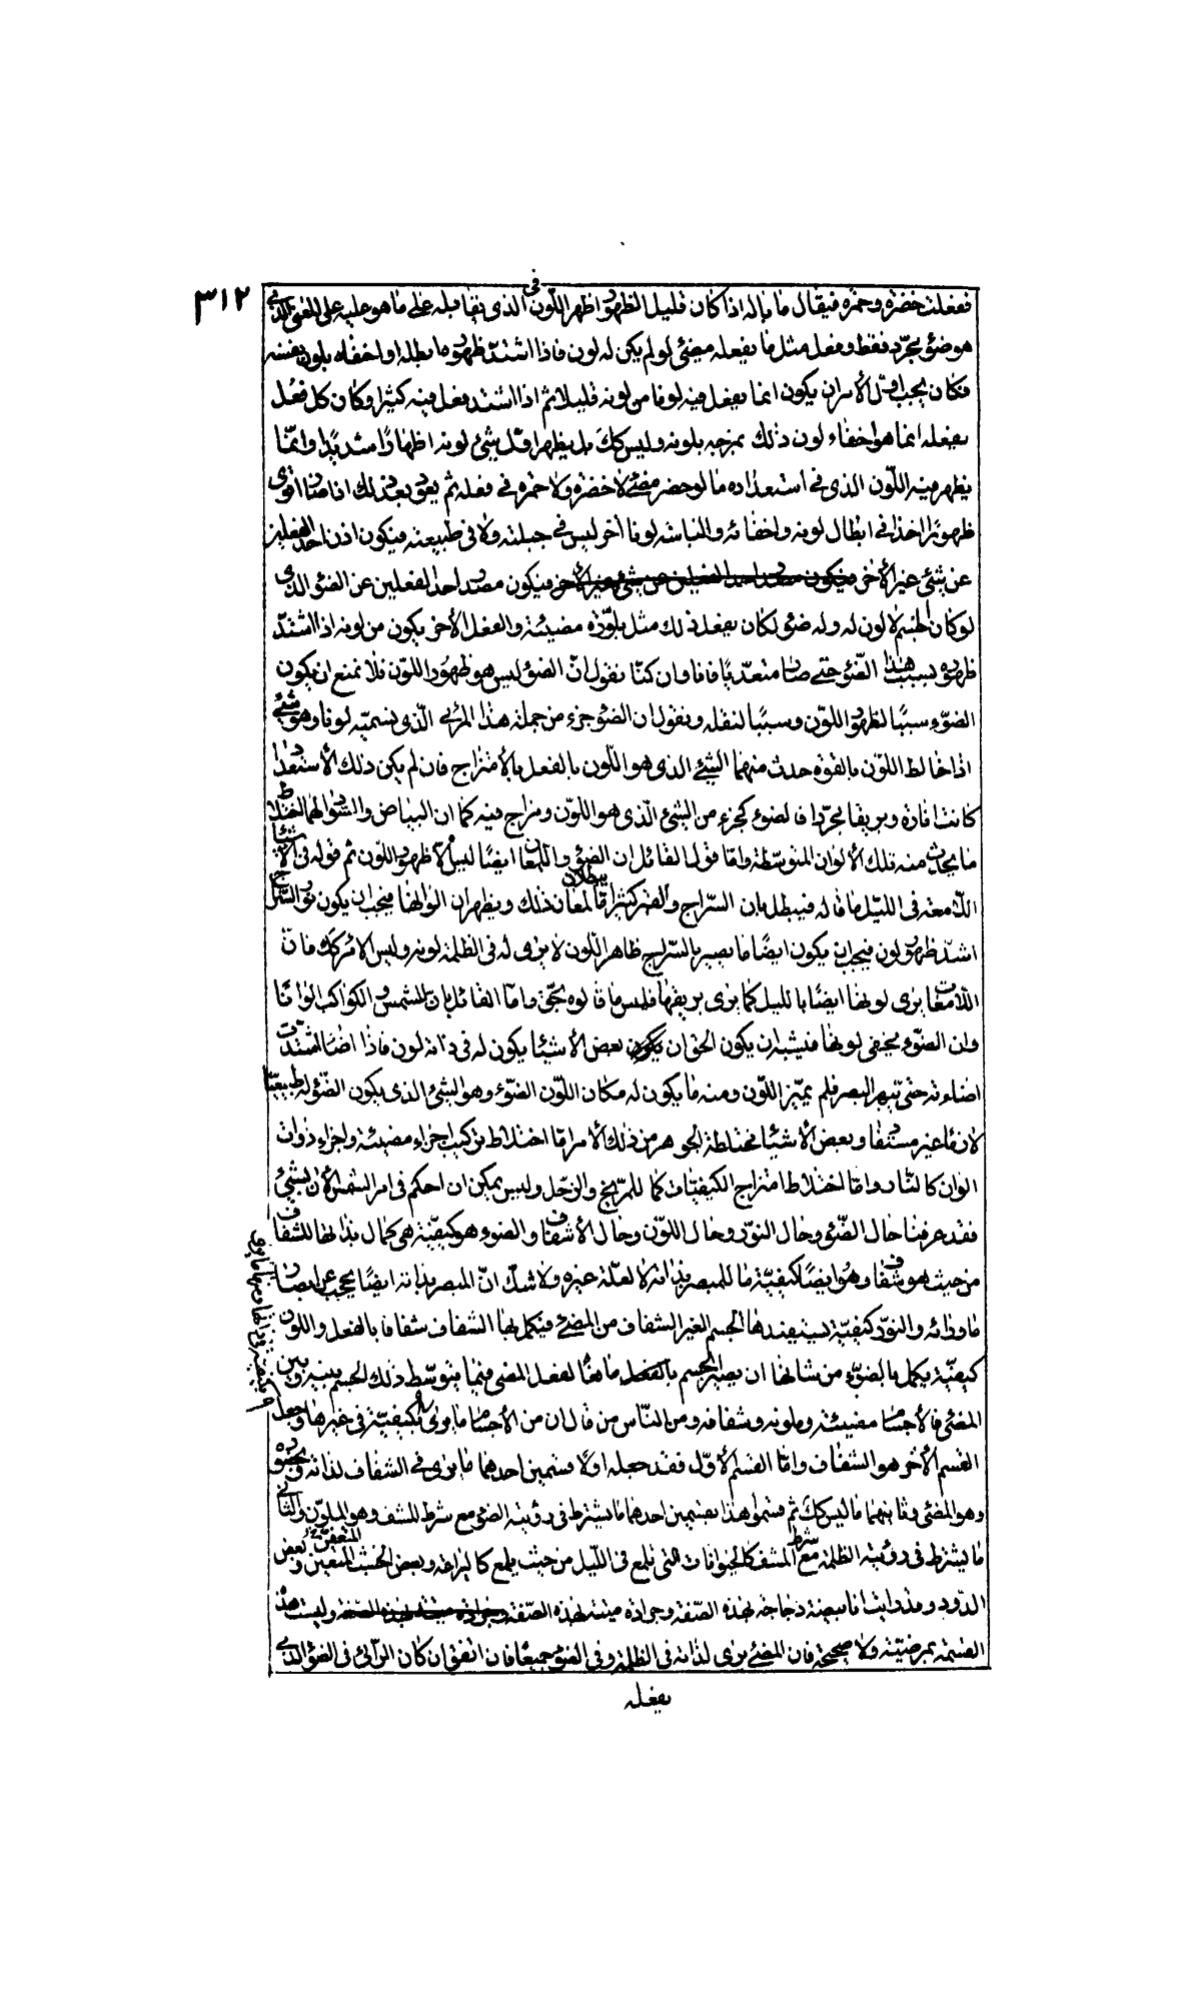 ٣١٢
ففعلت خضرة وحمرة فيقال ما باله اذا كان قليل الظهور اظهر اللون فى الذى يقابله على ما هو عليه على النحو الذى
هو ضوء مجرد فقط وفعل مثل ما يفعله مضئ لو لم يكن له لون فاذا اشتد ظهوره ابطله او اخفاه بلون نفسه
فكان يجب اول الأمر ان يكون انما يفعل فيه لونا من لونه قليلا ثم اذا اشتد فعل فيه كثيرا وكان كل فعل
يفعله انما هو اخفاء لون ذلك بمزجه بلونه وليس كك بل يظهر اول شئ لونه اظهارًا شديدًا وانما
يظهر منه اللون الذى فى استعداده ما لو حضر مضئ لا خضرة ولا حمرة فى فعله ثم يعود بعد ذلك اذا صار اقوى
ظهورًا اخذا فى ابطال لونه واخفائه والباسه لونا اخر ليس فى جبلته ولا فى طبيعته فيكون اذن احد الفعلين
عن شئ غير الأخر فيكون مصدر احد الفعلين عن الضوء الذى
لو كان الجسم لا لون له وله ضوء لكان يفعل ذلك مثل بلورة مضيئة والفعل الأخر يكون من لونه اذا اشتد
ظهوره بسبب هذا الضوء حتى صار متعديًا فانا وان كنا نقول ان الضوء ليس هو ظهور اللون فلا نمنع ان يكون
الضوء سببًا لظهور اللون وسببًا لنقله ونقول ان الضوء جزء من جملة هذا المرئى الذى نسميه لونا وهو شئ
اذا خالط اللون بالقوة حدث منهما الشئ الذى هو اللون بالفعل بالأمتزاج فان لم يكن ذلك الأستعداد
كانت انارة وبريقا مجردا فالضوء كجزء من الشئ الذى هو اللون ومزاج فيه كما ان البياض والسواد لهما اختلاط
ما يحدث منه تلك الألوان المتوسطة واما قول القائل ان الضوء واللمعان ايضًا ليس الا ظهور اللون ثم قوله فى الأشياء
اللامعة فى الليل ما قاله فيبطل بان السراج والقمر كثيرا ما يبطلان لمعان ذلك ويظهران الوانها فيجب ان يكون نور السراج
اشد ظهور لون فيجب ان يكون ايضًا ما يصير بالسراج ظاهر اللون لا يرى له فى الظلمة لونه وليس الامر كك فان
اللامعات يرى لونها ايضًا بالليل كما يرى بريقها فليس ما قالوه بحق واما القائل بان للشمس والكواكب الوانا
وان الضوء يخفى لونها فيشبه ان يكون الحق ان بعض الأشياء يكون له فى ذاته لون فاذا اضاء اشتدت
اضاءته حتى تبهر البصر فلم يميز اللون ومنه ما يكون له مكان اللون الضوء وهو الشئ الذى يكون الضوء له طبيعيا
لازما غير مستفاد وبعض الأشياء مختلطة الجوهر من ذلك الأمر اما اختلاط تركيب اجزاء مضيئة واجزاء ذوات
الوان كالنار واما اختلاط امتزاج الكيفيات كما للمريخ والزحل وليس يمكن ان احكم فى امر الشمس الأن بشئ
فقد عرفنا حال الضوء وحال النور وحال اللون وحال الأشفاف والضوء هو كيفية هى كمال بذاتها للشفاف
من حيث هو شفاف وهو ايضًا كيفية ما للمبصر بذاته لا لعلة غيره ولا شك ان المبصر بذاته ايضًا يحجب عن ابصار
ما ورائه والنور كيفية يستفيدها الجسم الغير الشفاف من المضئ فيكمل بها الشفاف شفافا بالفعل واللون
كيفية يكمل بالضوء من شانها ان يصير الجسم مانعًا لفعل المضى فيما يتوسط ذلك الجسم بينه وبين
المضئ فالأجسام مضيئة وملونة وشفافة ومن الناس من قال ان من الأجسام ما يرى بكيفيته فى غيرها وجعل
القسم الأخر هو الشفاف واما القسم الأول فقد جعله اولا قسمين احدهما ما يرى فى الشفاف لذاته وبحضوره
وهو المضئ وثانيهما ما ليس كك ثم قسموا هذا بقسمين احدهما ما يشترط فى رؤيته الضوء مع شرط المشف وهو الملون والثانى
ما يشترط فى رؤيته الظلمة مع شرط المشف كالحيوانات التى تلمع فى الليل من حيث يلمع كاليراعة وبعض الخشب المتعفن وبعض
الدود وقد رايت انا بيضة دجاجة بهذه الصفة وجرادة ميتة بهذه الصفة وليست هذه
القسمة بمرضية ولا صحيحة فان المضئ يرى لذاته فى الظلمة وفى الضوء جميعًا فان اتفق ان كان الرائى فى الضوء الذى
يفعله